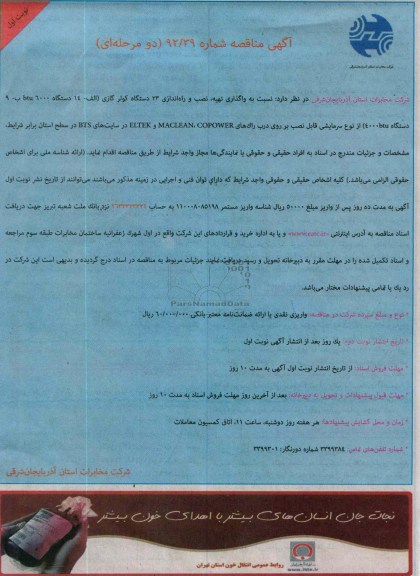 نوبت اول
آگهی مناقصه شماره ۹۲/۳۹ (دو مرحله‌ای)
شرکت مخابرات استان آذربایجان‌شرقی در نظر دارد: نسبت به واگذاری تهیه، نصب و راه‌اندازی ۲۳ دستگاه کولر گازی (الف- ۱۴ دستگاه ۶۰۰۰ btu ب- ۹
دستگاه ۴۰۰۰btu) از نوع سرمایشی قابل نصب بر روی درب راک‌های MACLEAN، COPOWER و ELTEK در سایت‌های BTS در سطح استان برابر شرایط،
مشخصات و جزئیات مندرج در اسناد به افراد حقیقی و حقوقی یا نمایندگی‌ها مجاز واجد شرایط از طریق مناقصه اقدام نماید. (ارائه شناسه ملی برای اشخاص
حقوقی الزامی می‌باشد) کلیه اشخاص حقیقی و حقوقی واجد شرایط که دارای توان فنی و اجرایی در زمینه مذکور می‌باشند می‌توانند از تاریخ نشر نوبت اول
آگهی به مدت ده روز پس از واریز مبلغ ۵۰۰۰۰ ریال شناسه واریز مستمر ۸۰۸۵۱۹۸-۱۱۰۰۰ به حساب نزد بانک ملت شعبه تبریز جهت دریافت
اسناد مناقصه به آدرس اینترنتی و یا به اداره خرید و قراردادهای این شرکت واقع در اول شهرک زعفرانیه ساختمان مخابرات طبقه سوم مراجعه
و اسناد تکمیل شده را در مهلت مقرر به دبیرخانه تحویل و رسید دریافت نمایند جزئیات مربوط به مناقصه در اسناد درج گردیده و بدیهی است این شرکت در
رد یک یا تمامی پیشنهادات مختار می‌باشد.
ParsNamadData
* نوع و مبلغ سپرده شرکت در مناقصه: واریزی نقدی یا ارائه ضمانت‌نامه معتبر بانکی ۶۰/۰۰۰/۰۰۰ ریال
* تاریخ انتشار نوبت دوم: یک روز بعد از انتشار آگهی نوبت اول
* مهلت فروش اسناد: از تاریخ انتشار نوبت اول آگهی به مدت ۱۰ روز
* مهلت قبول پیشنهادات و تحویل به دبیرخانه: بعد از آخرین روز مهلت فروش اسناد به مدت ۱۰ روز
* زمان و محل گشایش پیشنهادها: هر هفته روز دوشنبه، ساعت ۱۱، اتاق کمسیون معاملات
* شماره تلفن‌های تماس: ۳۲۹۹۳۸۴ شماره دورنگار: ۳۲۹۹۳۰۱
شرکت مخابرات استان آذربایجان‌شرقی
نجات جان انسان‌های بیشتر با اهدای خون بیشتر
روابط عمومی انتقال خون استان تهران